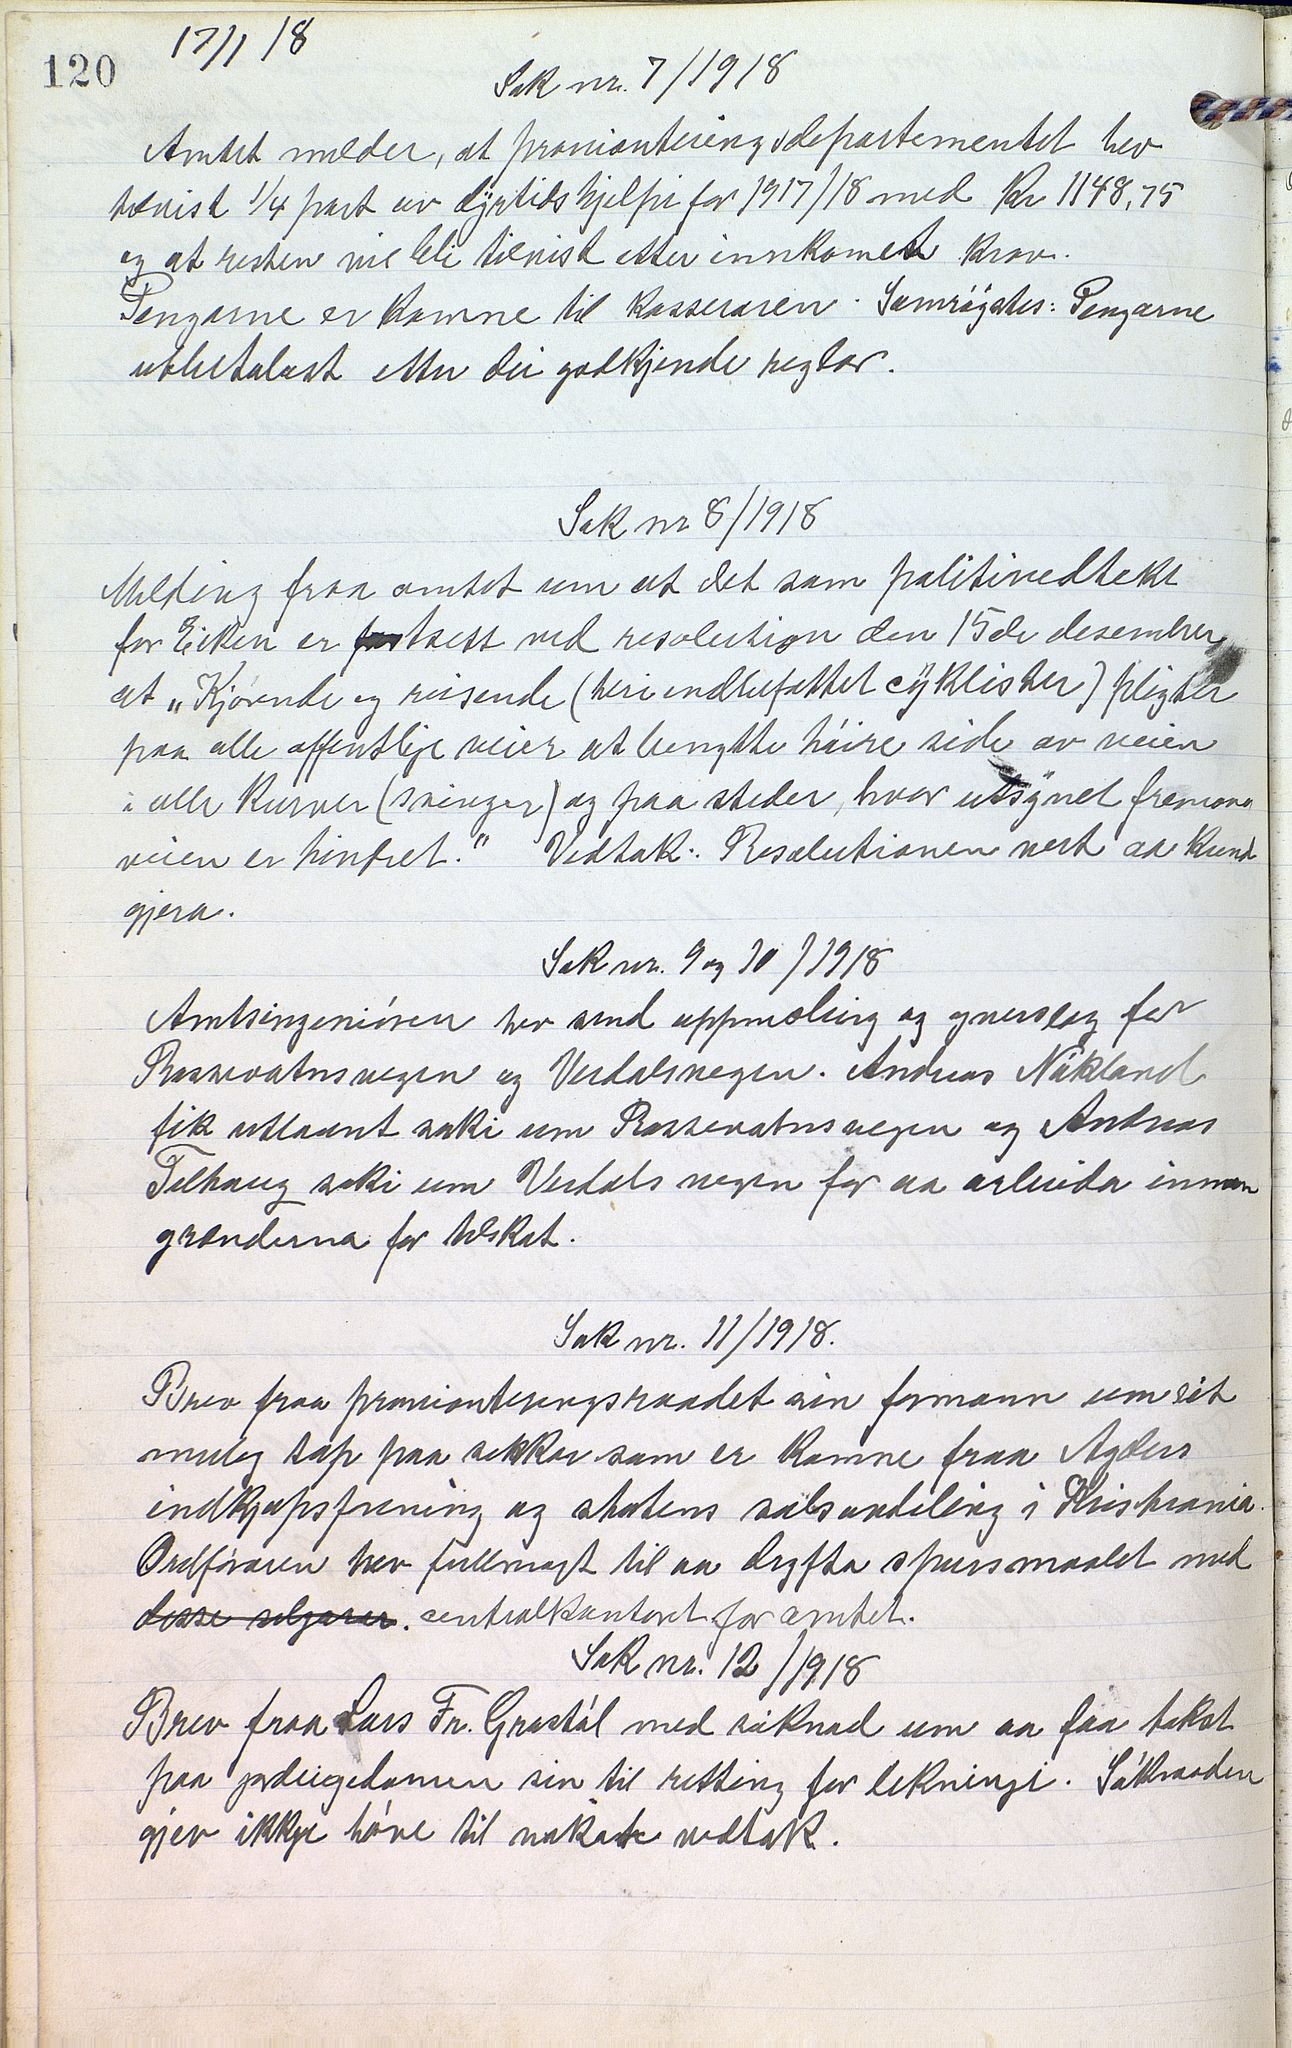 120
17/1 18
Sak nr. 7/1918
Amtet melder, at provianteringsdepartementet hev
tilvist 1/4 part av dyrtidshjelpi for 1917/18 med Kr 1148,75
og at resten vil bli tilvist etter innkomet krav.
Pengarne er komne til kasseraren. Samrøystes: Pengarne
utbetalast etter dei godkjende reglar.
Sak nr 8/1918
Melding fraa amtet um at det som politivedtekt
for Eiken er fastsett ved resolution den 15de desember,
at "Kjørende og reisende (heri indbefattet cyklister) pligter
paa alle offentlige veier at benytte høire side av veien
i alle kurver (svinger) og paa steder, hvor utsynet fremover
veien er hindret." Vedtak: Resolutionen vert aa kund
gjera.
Sak nr. 9 og 10/1918
Amtsingeniøren hev send uppmæling og yverslag for
Rossevatnsvegen og Verdalsvegen. Andreas Nøkland
fik utlaant saki um Rossevatnsvegen og Andreas
Telhaug saki um Verdalsvegen for aa arbeida innan
grænderna for tilskot.
Sak nr. 11/1918.
Brev fraa provianteringsraadet sin formann um eit
muleg tap paa sekkar som er komne fraa Agders
indkjøpsforening og statens salsavdeling i Kristiania.
Ordføraren hev fullmagt til aa drøfta spursmaalet med
disse selgarar. centralkontoret for amtet.
Sak nr. 12/1918
Brev fraa Lars Fr. Grostøl med søknad um aa faa takst
paa jordeigedomen sin til retting for likningi. Søknaden
gjev ikkje høve til nokot vedtak.